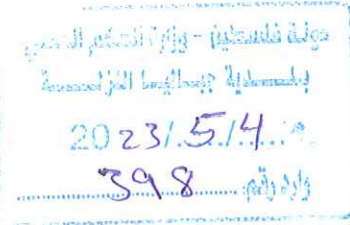 دولة فلسطين - وزارة الحكم المحلي
بلدية جباليا النزلة
2023/.5./.4
وارد رقم: 398